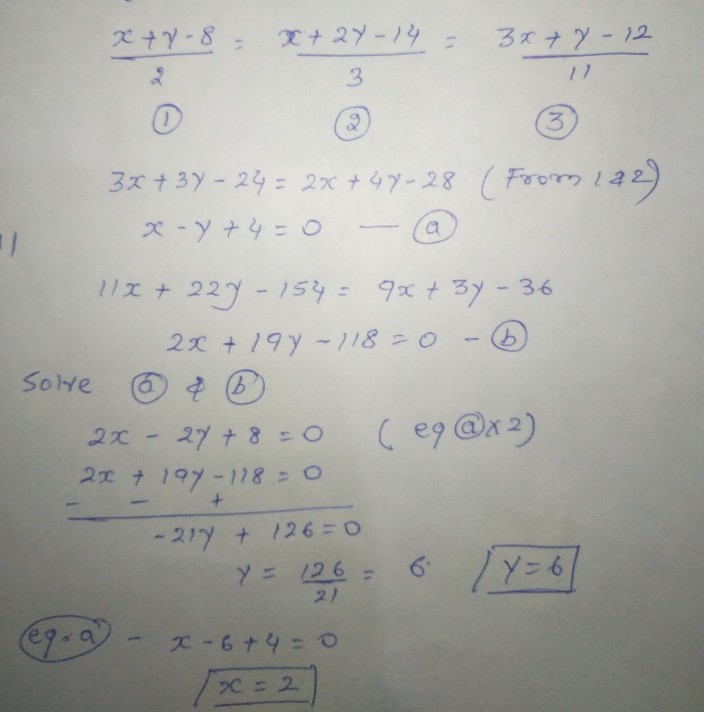 x+y-8 = x+2y-14 = 3x+y-12
2 3 11
① ② ③
3x+3y-24 = 2x+4y-28 (From 1&2)
x-y+4=0 — ⓐ
11
11x+22y-154 = 9x+3y-36
2x+19y-118=0 - ⓑ
Solve ⓐ & ⓑ
2x-2y+8=0 (eq ⓐx2)
2x+19y-118=0
- - +
-21y+126=0
y = 126/21 = 6 y=6
eq-a - x-6+4=0
x=2